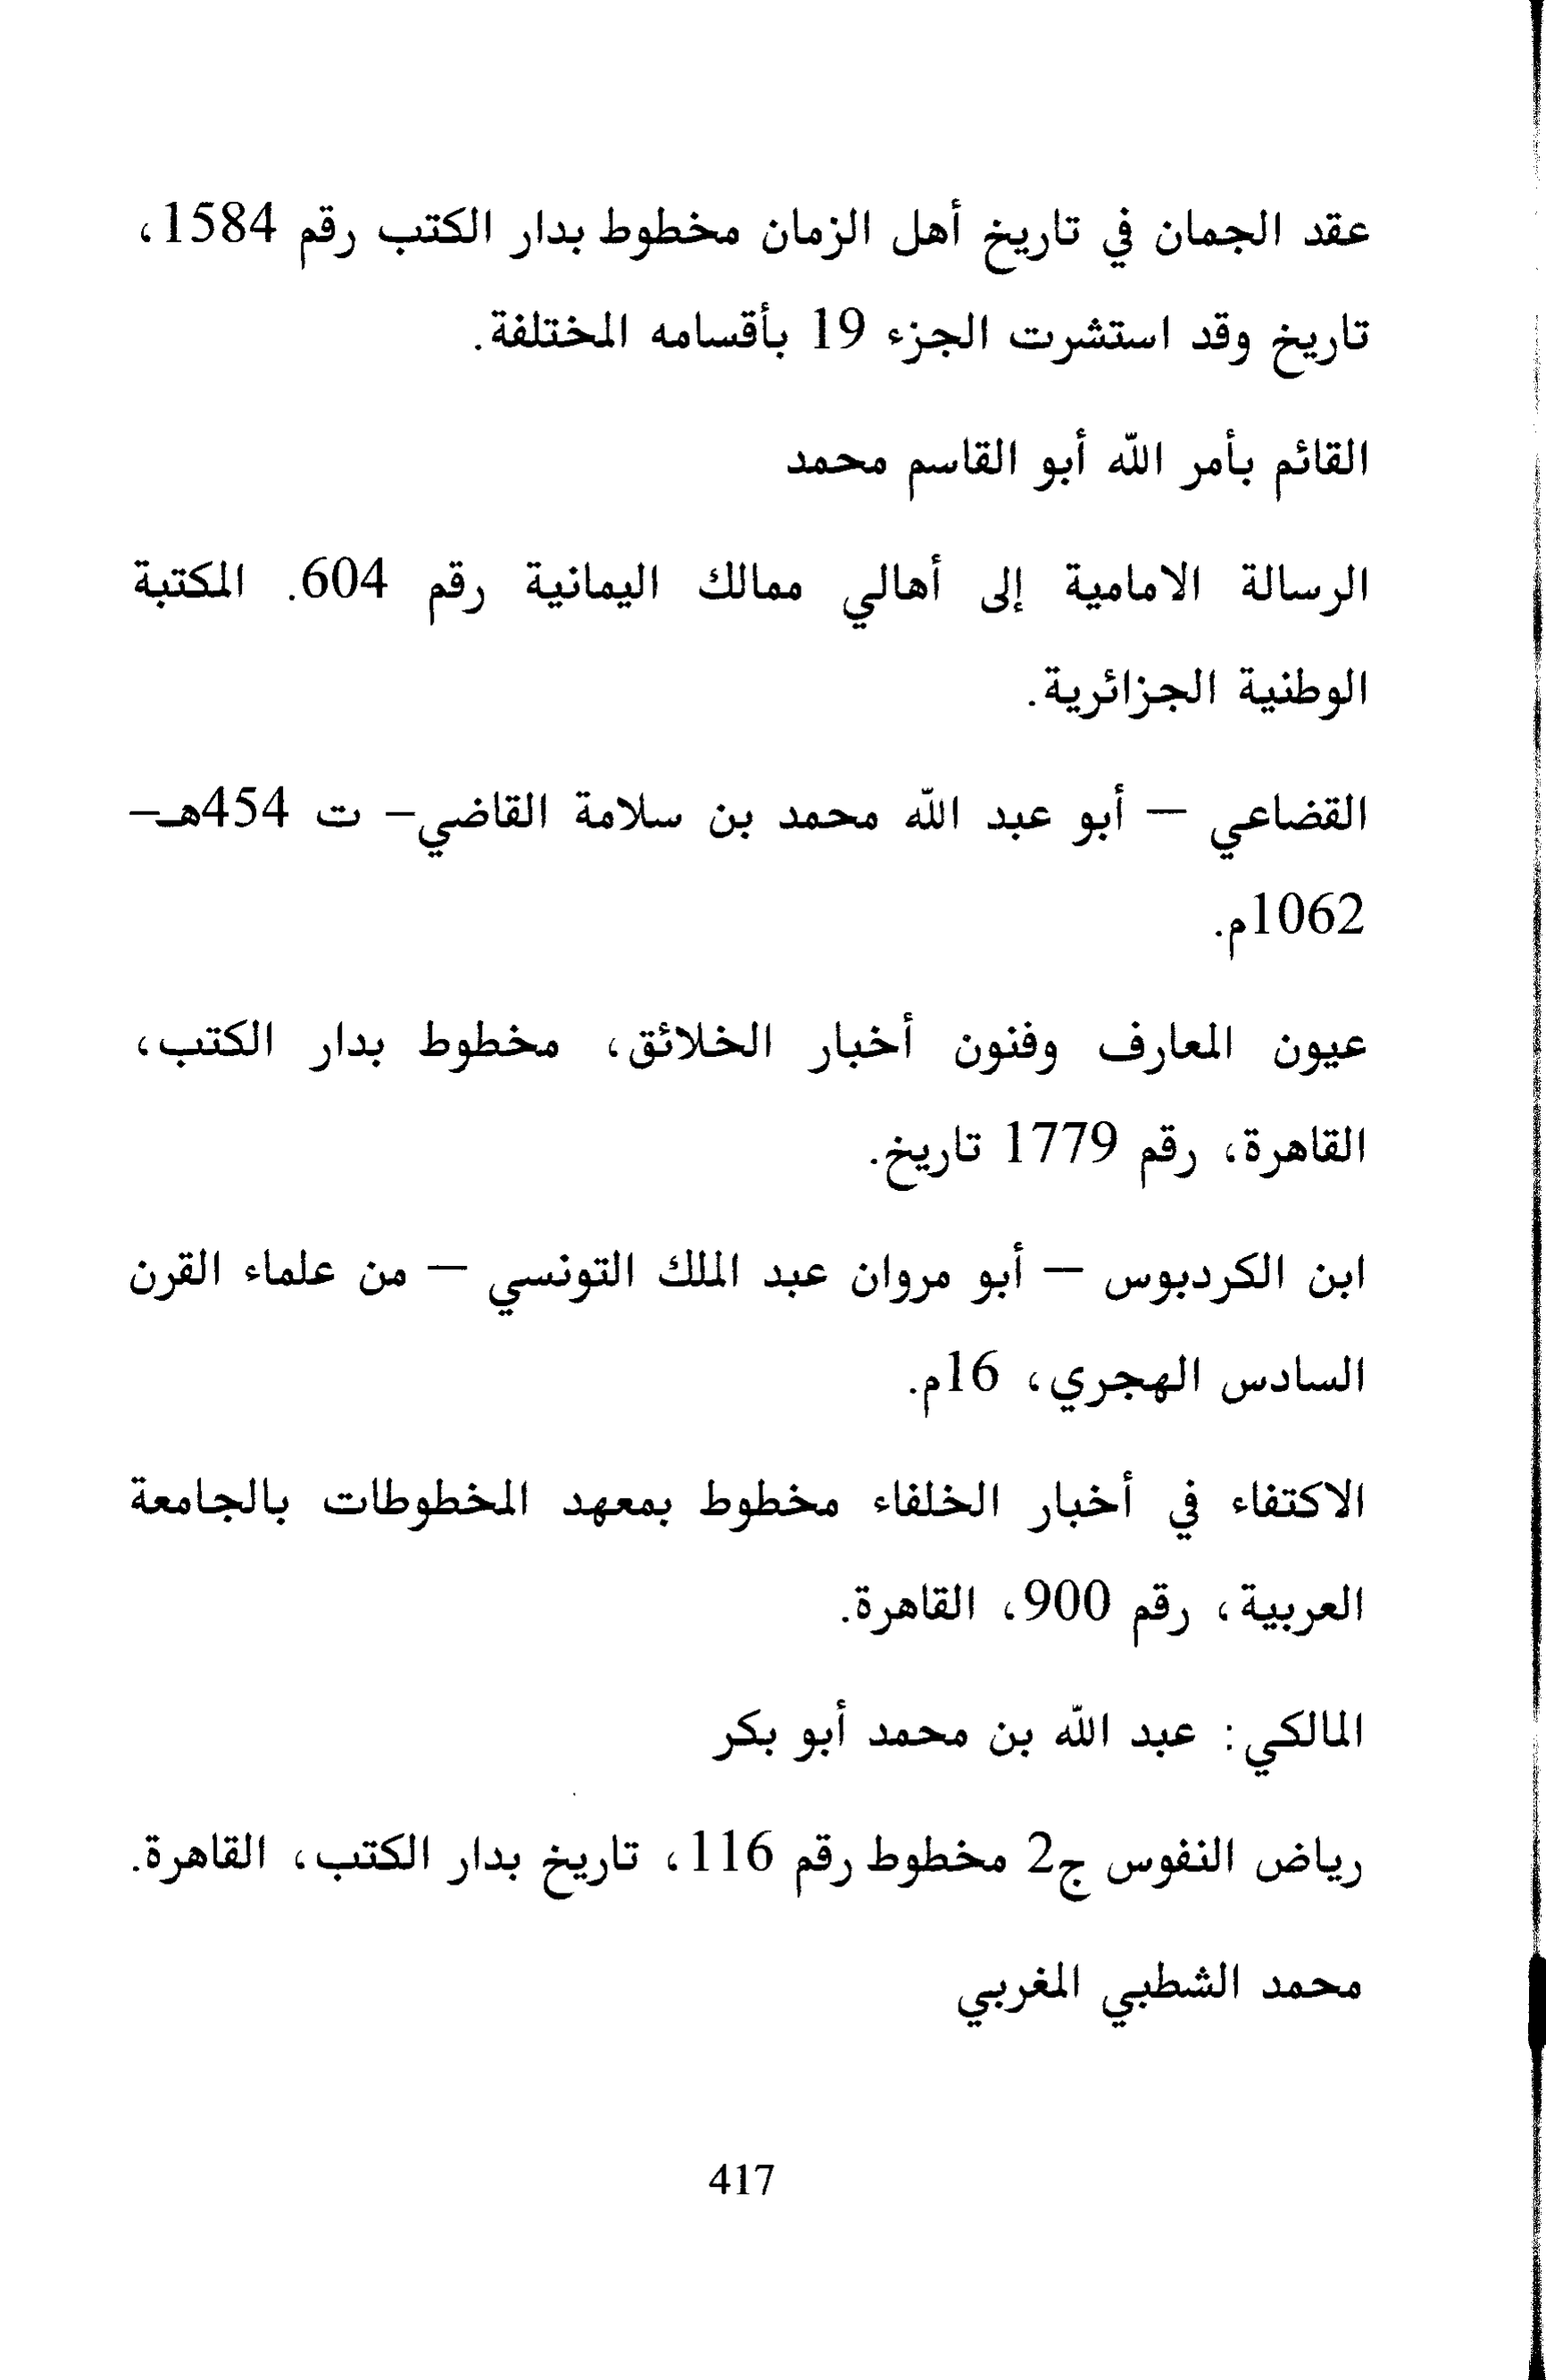 عقد الجمان في تاريخ أهل الزمان مخطوط بدار الكتب رقم 1584،
تاريخ وقد استشرت الجزء 19 بأقسامه المختلفة.
القائم بأمر الله أبو القاسم محمد
الرسالة الامامية إلى أهالي ممالك اليمانية رقم 604. المكتبة
الوطنية الجزائرية.
القضاعي – أبو عبد الله محمد بن سلامة القاضي– ت 454هـ–
1062م.
عيون المعارف وفنون أخبار الخلائق، مخطوط بدار الكتب،
القاهرة، رقم 1779 تاريخ.
ابن الكردبوس – أبو مروان عبد الملك التونسي – من علماء القرن
السادس الهجري، 16م.
الاكتفاء في أخبار الخلفاء مخطوط بمعهد المخطوطات بالجامعة
العربية، رقم 900، القاهرة.
المالكي: عبد الله بن محمد أبو بكر
رياض النفوس ج2 مخطوط رقم 116، تاريخ بدار الكتب، القاهرة.
محمد الشطبي المغربي
417